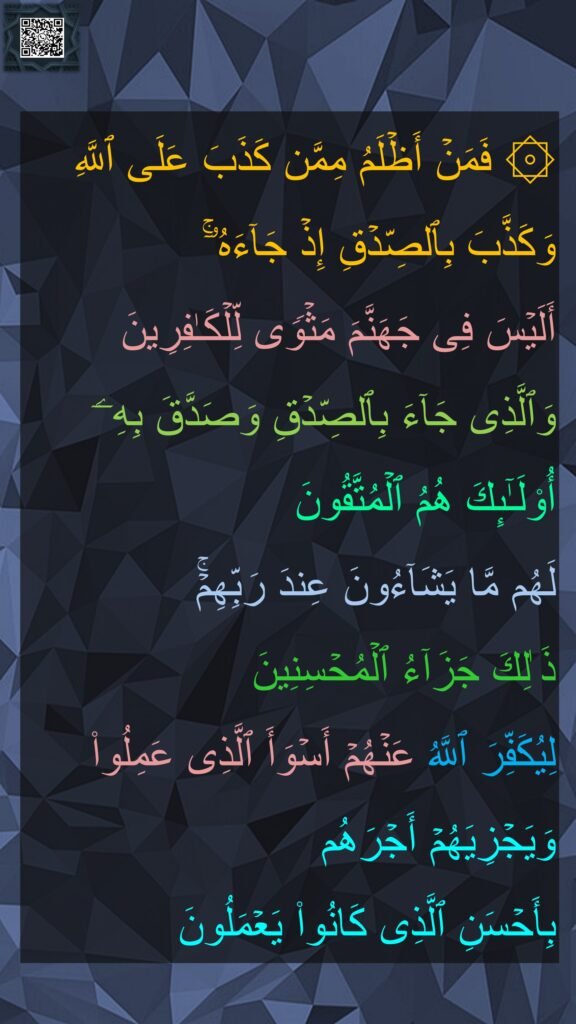 ۞ فَمَنۡ أَظۡلَمُ مِمَّن كَذَبَ عَلَى ٱللَّهِ
وَكَذَّبَ بِٱلصِّدۡقِ إِذۡ جَآءَهُۥٓۚ
أَلَيۡسَ فِى جَهَنَّمَ مَثۡوٗى لِّلۡكَـٰفِرِينَ
وَٱلَّذِى جَآءَ بِٱلصِّدۡقِ وَصَدَّقَ بِهِۦٓ
أُوْلَـٰٓئِكَ هُمُ ٱلۡمُتَّقُونَ
لَهُم مَّا يَشَآءُونَ عِندَ رَبِّهِمۡۚ
ذَٰلِكَ جَزَآءُ ٱلۡمُحۡسِنِينَ
لِيُكَفِّرَ ٱللَّهُ عَنۡهُمۡ أَسۡوَأَ ٱلَّذِى عَمِلُواْ
وَيَجۡزِيَهُمۡ أَجۡرَهُم
بِأَحۡسَنِ ٱلَّذِى كَانُواْ يَعۡمَلُونَ